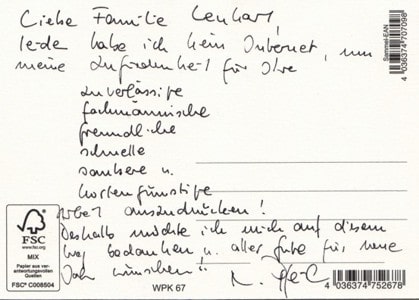 Liebe Familie Lenhart,
leider habe ich kein Internet, um
meine Zufriedenheit für Ihre
zuverlässige
fachmännische
freundliche
schnelle
saubere u.
kostengünstige
Arbeit auszudrücken!
Deshalb möchte ich mich auf diesem
Weg bedanken u. alles gute für neue
Jahr wünschen!!
Sammel-EAN
4 036374 707098
FSC
www.fsc.org
MIX
Papier aus ver-
antwortungsvollen
Quellen
FSC® C008504
WPK 67
4 036374 752678